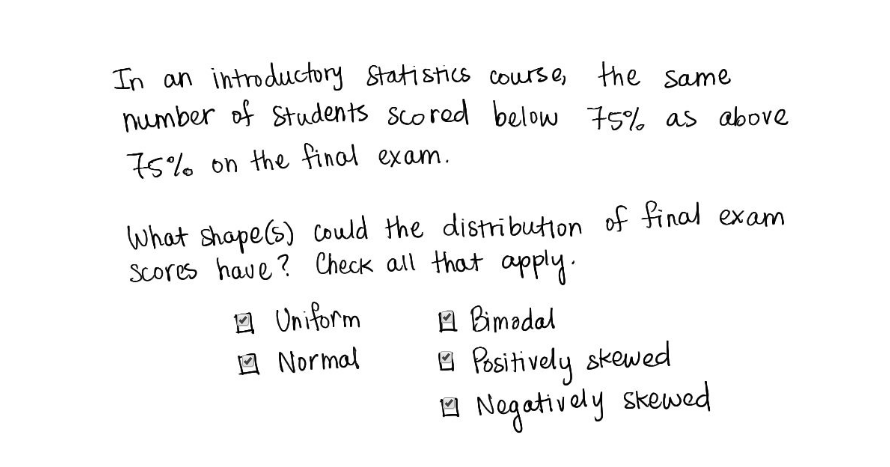 In an introductory statistics course, the same
number of students scored below 75% as above
75% on the final exam.
What shape(s) could the distribution of final exam
scores have? Check all that apply.
☑ Uniform ☑ Bimodal
☑ Normal ☑ Positively skewed
☑ Negatively skewed